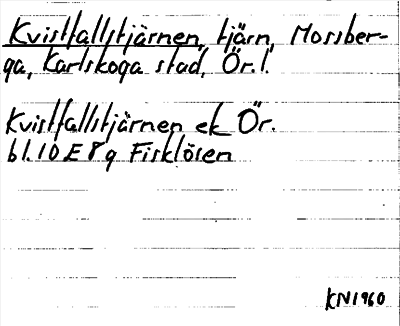 Kvistfallstjärnen, tjärn, Mossber-
ga, Karlskoga stad, Ör. l.
Kvistfallstjärnen ek Ör.
bl. 10 E 8 g Fisklösen
KN1960